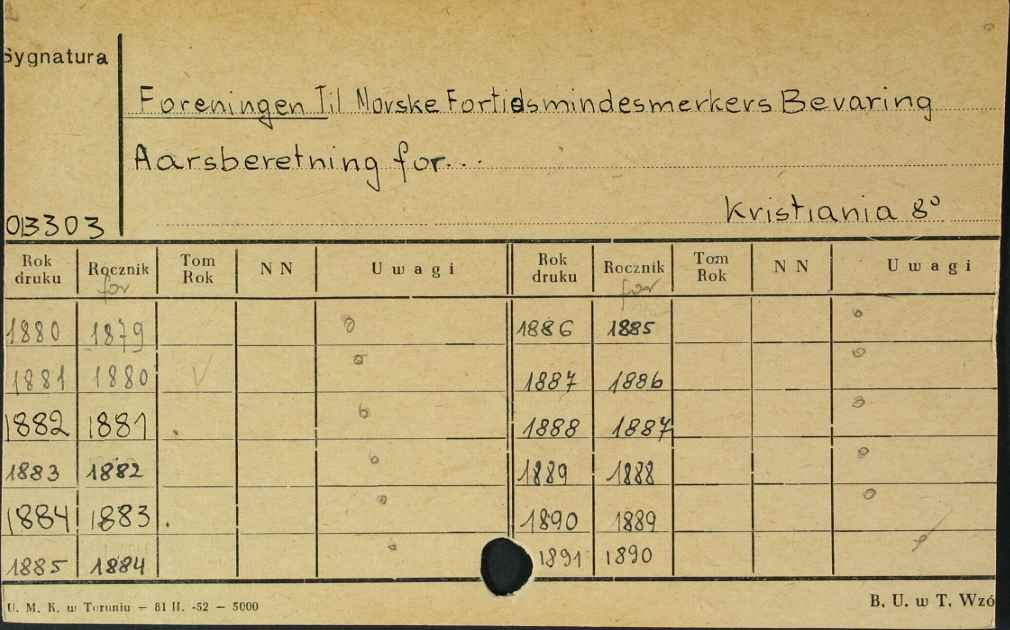 Sygnatura
Foreningen Til Norske Fortidsmindesmerkers Bevaring
Aarsberetning for...
Kristiania 8°
013303
Rok druku Rocznik for Tom Rok N N Uwagi Rok druku Rocznik for Tom Rok N N Uwagi
1880 1879 1886 1885
1881 1880 V 1887 1886
1882 1881 . 1888 1887
1883 1882 1889 1888
1884 1883 . 1890 1889
1885 1884 1891 1890
U. M. K. w Toruniu — 81 II. -52 — 5000 B. U. w T. Wzó